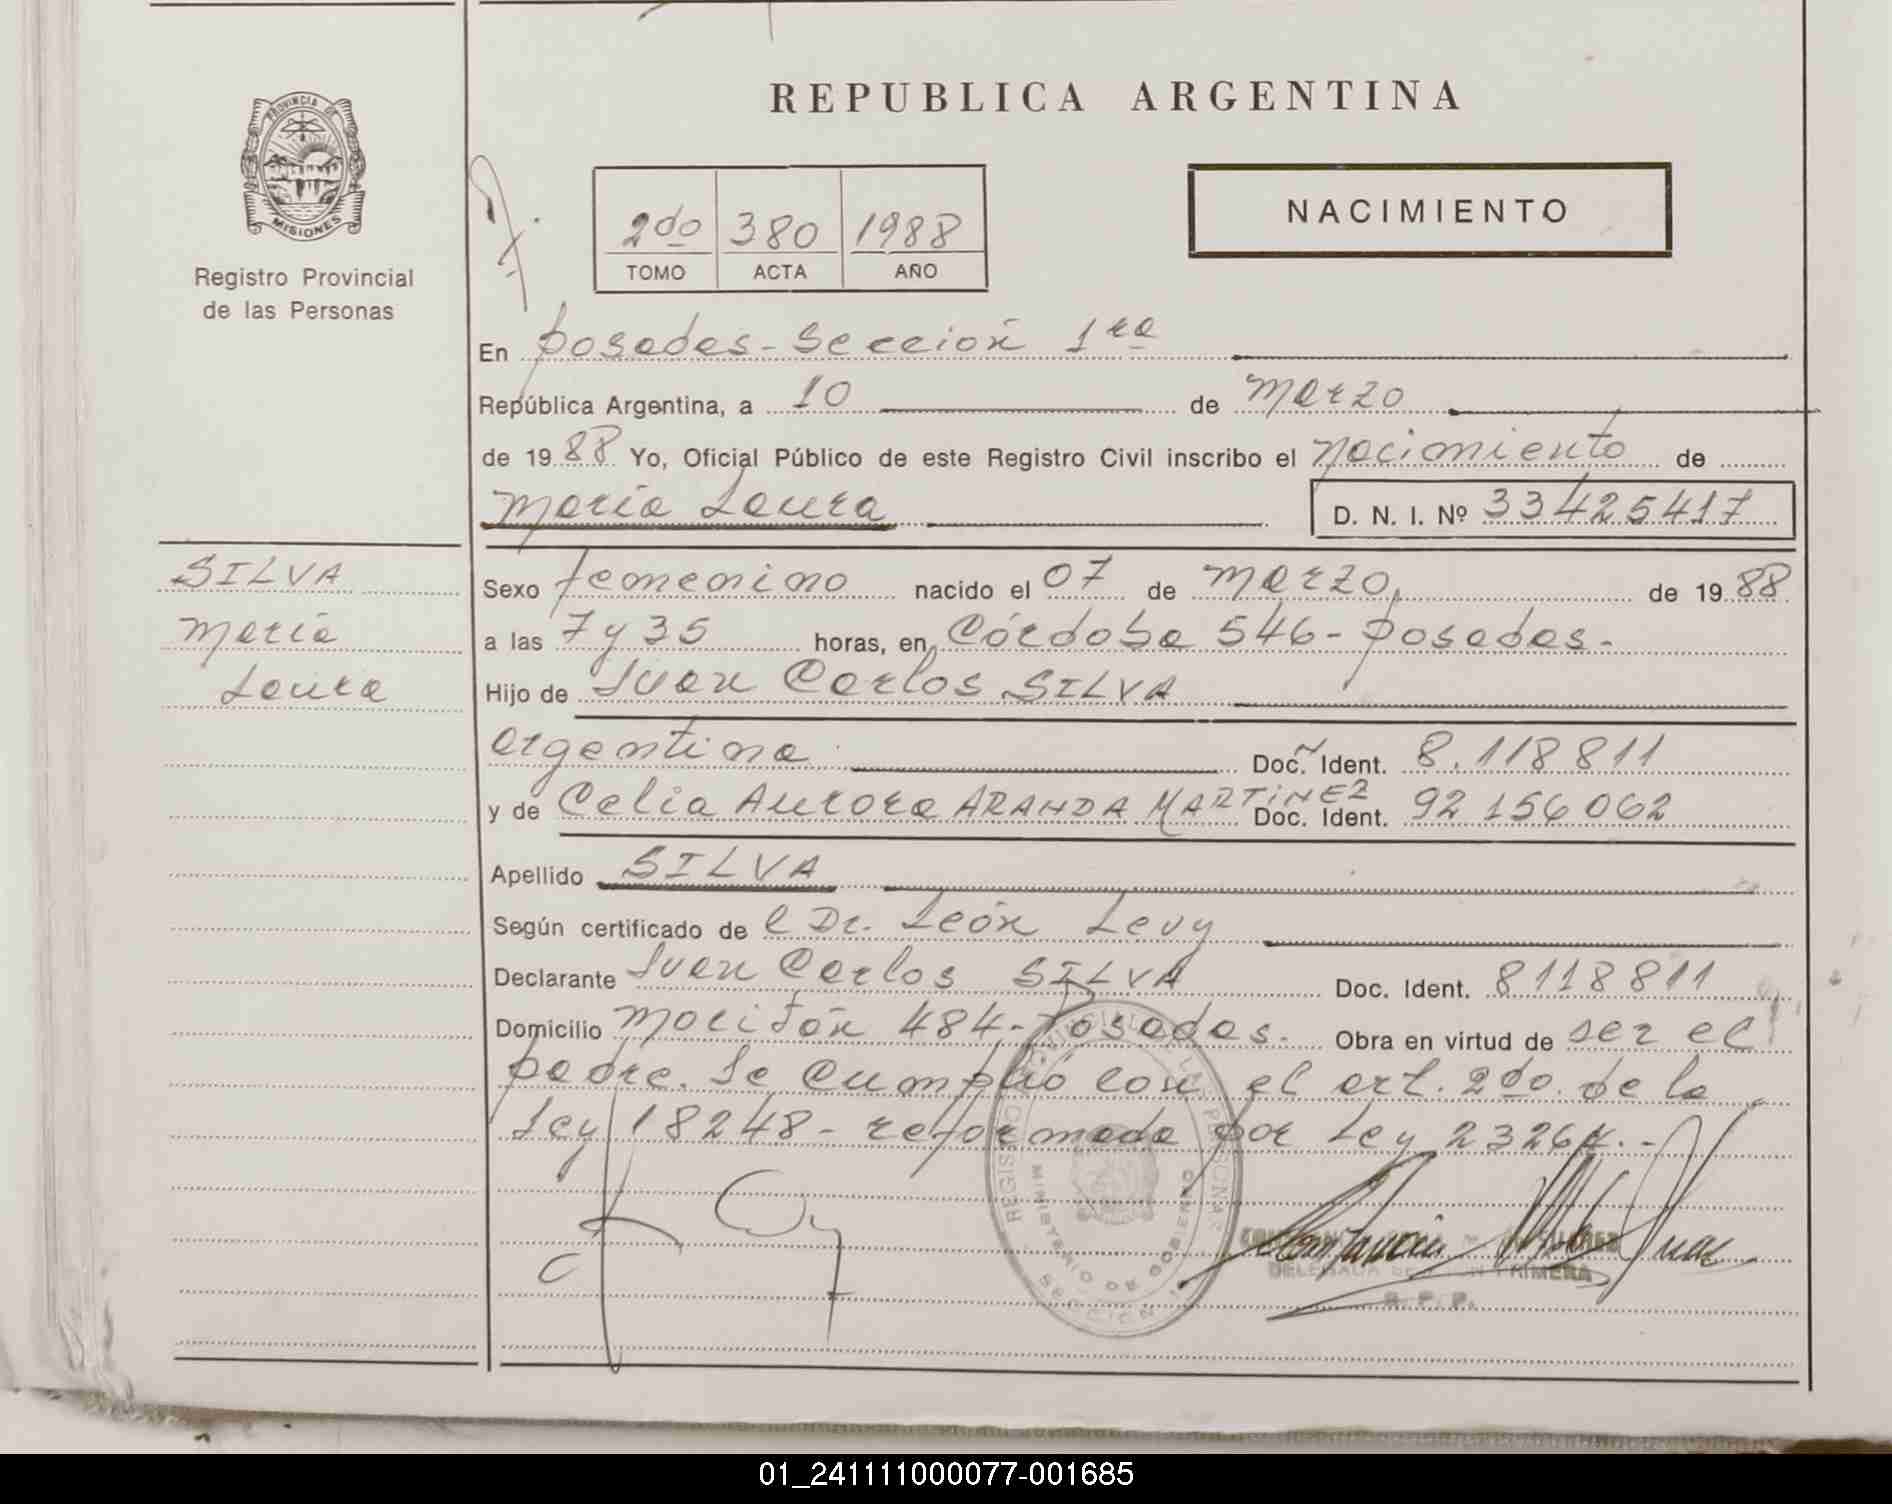 REPUBLICA ARGENTINA
PROVINCIA DE
MISIONES
Registro Provincial
de las Personas
2do 380 1988
TOMO ACTA AÑO
NACIMIENTO
En posadas - Sección 1ra
República Argentina, a 10 de marzo
de 1988 Yo, Oficial Público de este Registro Civil inscribo el nacimiento de
maría Laura D. N. I. Nº 33425417
SILVA
maría
Laura
Sexo femenino nacido el 07 de marzo, de 1988
a las 7 y 35 horas, en Córdoba 546 - posadas.
Hijo de Juan Carlos SILVA
argentina Doc. Ident. 8.118811
y de Celia Aurora ARANDA MARTINEZ Doc. Ident. 92 156 062
Apellido SILVA
Según certificado de l Dr. León Levy
Declarante Juan Carlos SILVA Doc. Ident. 8118811
Domicilio 484 - Posadas. Obra en virtud de ser el
padre. Se cumplió con el art. 2do. de la
Ley 18248 - reformada por Ley 23264.-
REGISTRO PROVINCIAL DE LAS PERSONAS
MINISTERIO DE GOBIERNO
SECCION 1
DELEGADA PRIMERA
R. P. P.
01_241111000077-001685